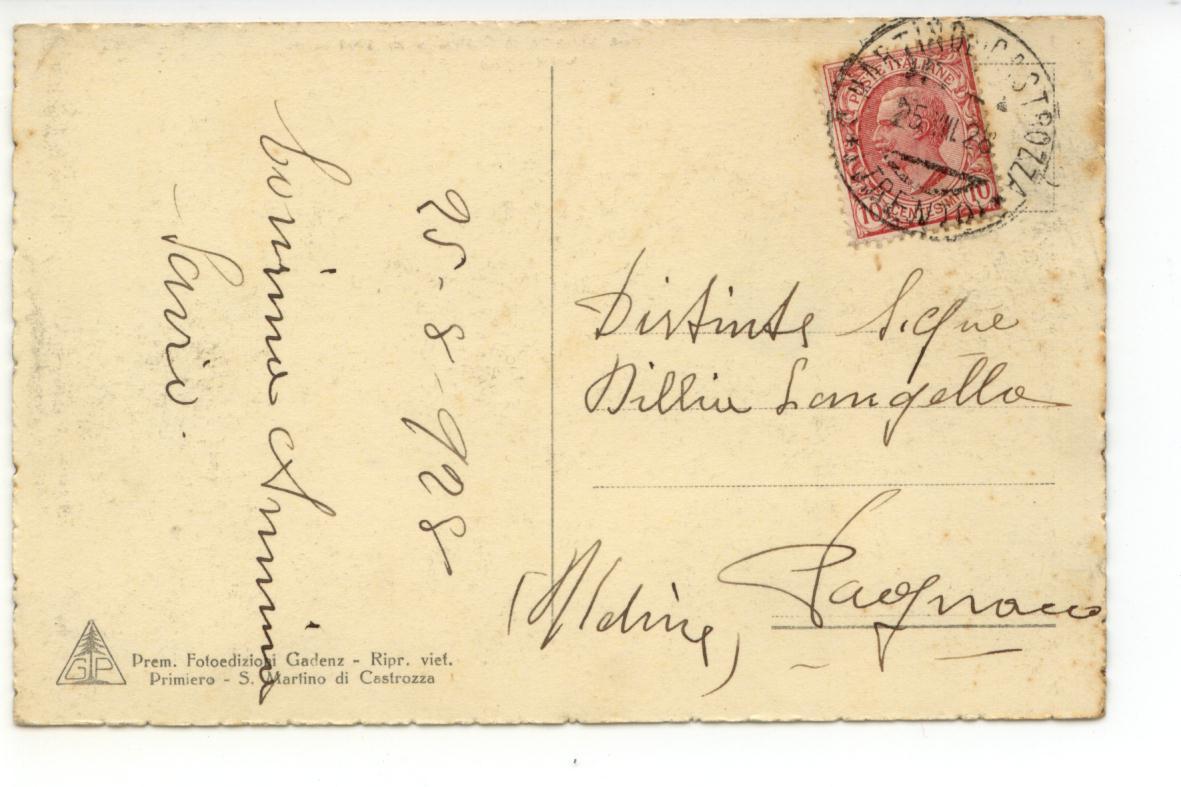 25-8-928
Savio.
S. MARTINO DI CASTROZZA
* (TRENTO) *
25 28
POSTE ITALIANE
10 CENTESIMI 10
Distinte
Langella
Pagnacco
(Udine)
GP
Prem. Fotoedizioni Gadenz - Ripr. viet.
Primiero - S. Martino di Castrozza